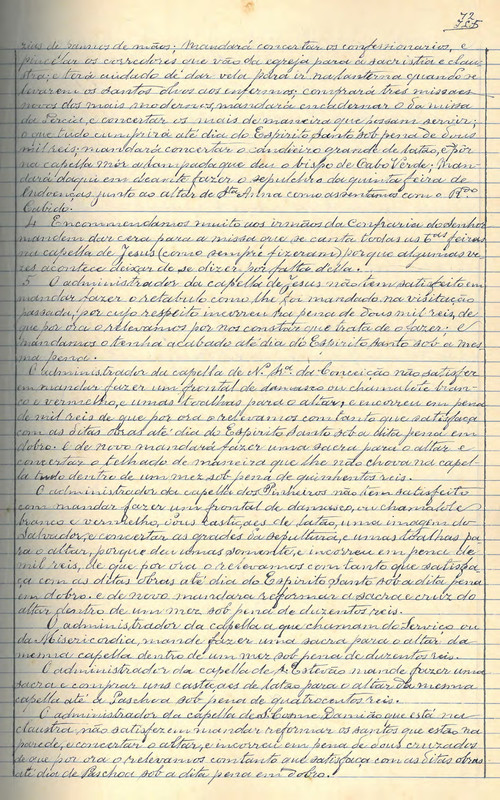 72
rias de pannos de mãos; Mandará concertar os confessionarios, e
pencelar os corredores que vão da egreja para a sacristia e claus
tra; e terá cuidado de dar vela para ir na lanterna quando se
levarem os Santos oleos aos enfermos; comprará tres missaes
novos dos mais modernos; mandará encadernar o da missa
da Terça, e concertar os mais de maneira que possam servir;
o que tudo cumprirá até dia do Espirito Santo sob pena de dous
mil reis; mandará concertar o candieiro grande de latão, e pôr
na capella mór a lampada que deu o bispo de Cabo Verde; Man-
dará daqui em deante fazer o sepulchro da quinta feira de
Endoenças junto ao altar de Sta Anna como assentámos com o R.do
Cabido.
4 Encommendamos muito aos irmãos da Confraria do Senhor
mandem dar cera para a missa que se canta todas as 6as feiras
na capella de Jesus (como sempre fizeram) porque algumas ve
zes acontece deixar de se dizer por falta della.
5 O administrador da capella de Jesus não tem satisfeito em
mandar fazer o retabulo como lhe foi mandado na visitação
passada, por cujo respeito incorreu na pena de dous mil reis, de
que por ora o relevamos por nos constar que trata de o fazer; e
mandamos o tenha acabado até dia do Espirito Santo sob a mes
ma pena.
O administrador da capella de N.ª Sr.ª da Conceição não satisfez
em mandar fazer um frontal de damasco ou chamalote bran-
co e vermelho, e umas toalhas para o altar, e encorreu em pena
de mil reis de que por ora o relevamos comtanto que satisfaça
com as ditas obras até dia do Espirito Santo sob a dita pena em
dobro. E de novo mandará fazer uma sacra para o altar e
concertar o telhado de maneira que lhe não chova na capel-
la tudo dentro de um mez sob pena de quinhentos reis.
O administrador da capella dos Pinheiros não tem satisfeito
com mandar fazer um frontal de damasco, ou chamalote
branco e vermelho, dous castiçaes de latão, uma imagem do
Salvador, e concertar as grades da sepultura, e umas toalhas pa
ra o altar, porque deu umas somente, e incorreu em pena de
mil reis, de que por ora o relevamos com tanto que satisfa
ça com as ditas obras até dia do Espirito Santo sob a dita pena
em dobro. e de novo mandará reformar a sacra e cruz do
altar dentro de um mez sob pena de duzentos reis.
O administrador da capella a que chamam do Serviço, ou
da Misericordia, mande fazer uma sacra para o altar da
mesma capella dentro de um mez sob pena de duzentos reis.
O administrador da capella de S. Estevão mande fazer uma
sacra e comprar uns castiçaes de latão para o altar da mesma
capella até á Paschoa sob pena de quatrocentos reis.
O administrador da capella de S. Cosme Damião que está na
claustra, não satisfez em mandar reformar os santos que estão na
parede, e concertar o altar, e incorreu em pena de dous cruzados
de que por ora o relevamos comtanto que satisfaça com as ditas obras
até dia de Paschoa sob a dita pena em dobro.